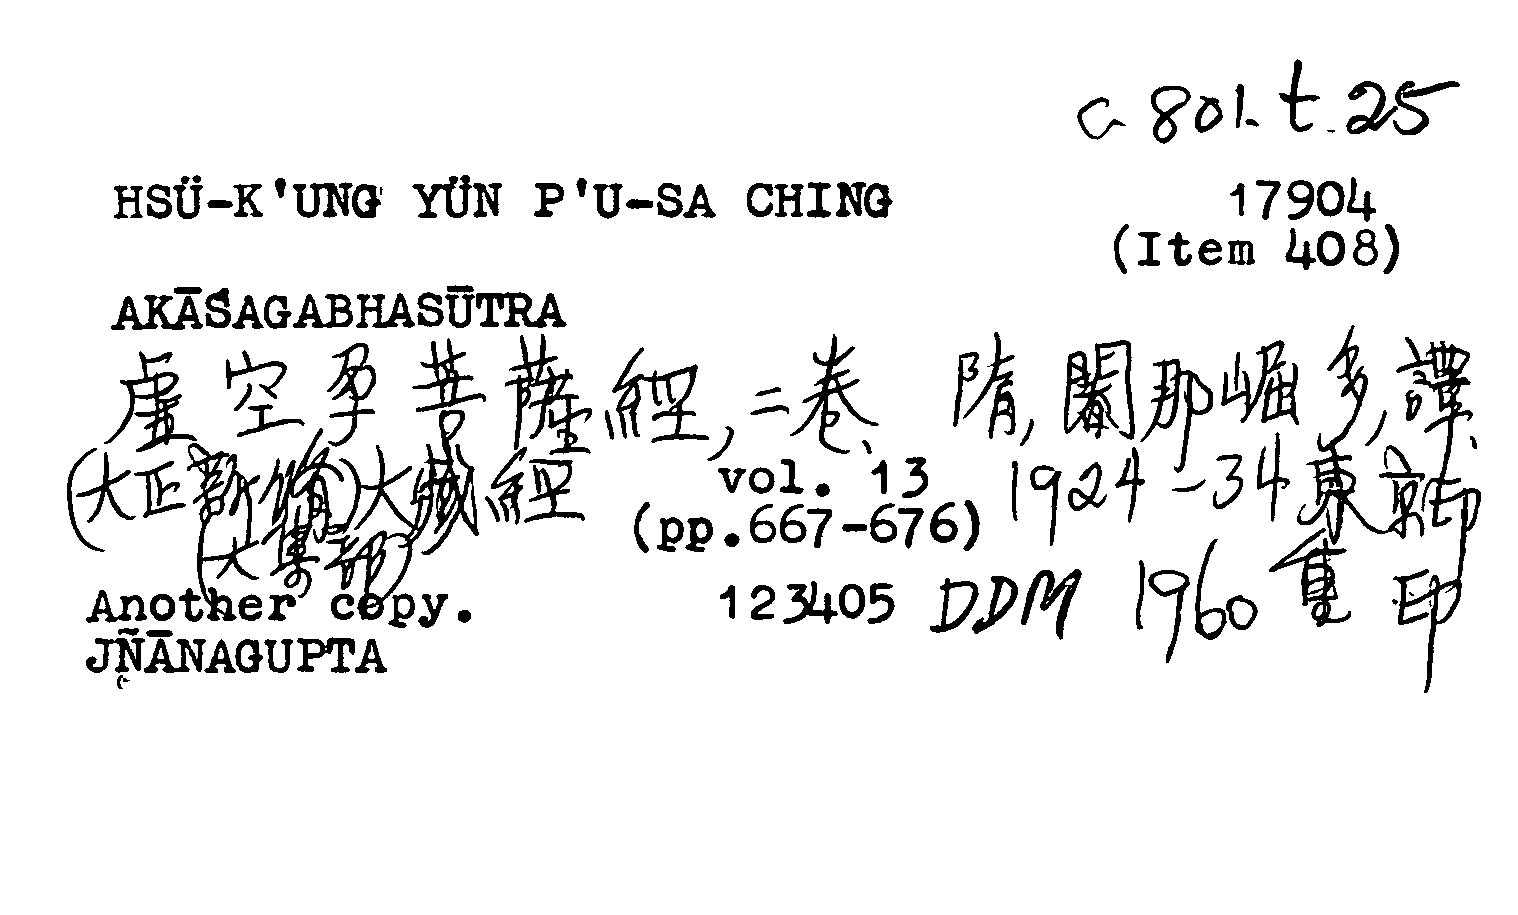 C 801. t. 25
HSÜ-K'UNG YÜN P'U-SA CHING 17904
(Item 408)
AKĀŚAGABHASŪTRA
虛空孕菩薩經, 二卷、 隋, 闍那崛多, 譯.
(大正新脩)大藏經 vol. 13 1924-34 東京印
(大集部) (pp.667-676)
Another copy. 123405 DDM 1960 重印
JÑĀNAGUPTA